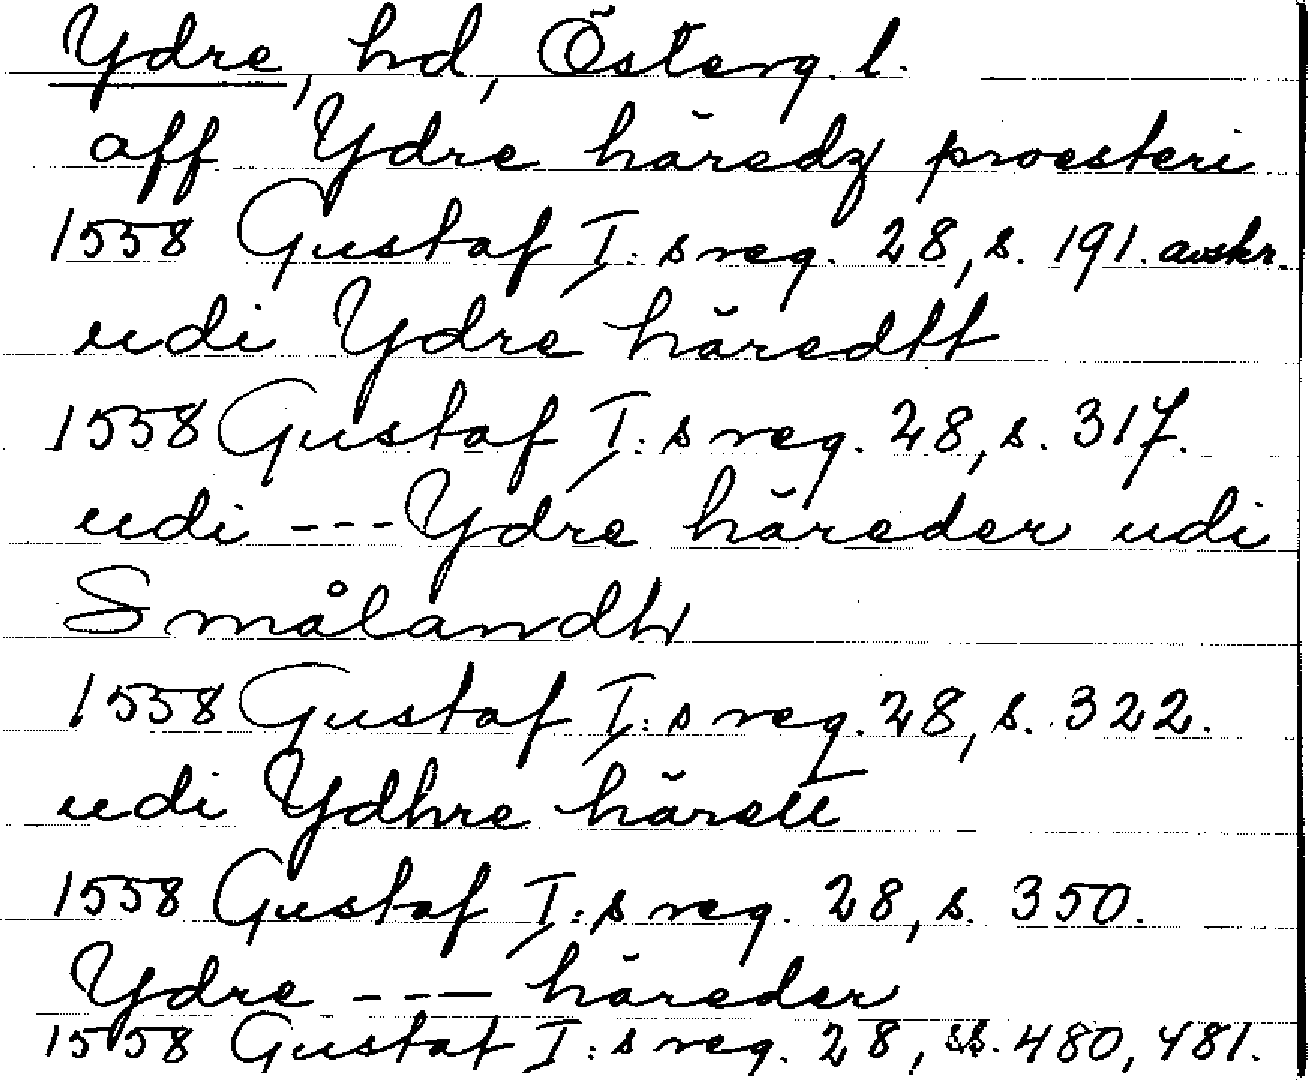 Ydre, hd, Österg. l.
aff Ydre häredz proesteri
1558 Gustaf I:s reg. 28, s. 191. avskr.
udi Ydre häredtt
1558 Gustaf I:s reg. 28, s. 317.
udi --- Ydre häreder udi
Smålandh
1558 Gustaf I:s reg. 28, s. 322.
udi Ydhre härett
1558 Gustaf I:s reg. 28, s. 350.
Ydre --- häreder
1558 Gustaf I:s reg. 28, ss. 480, 481.